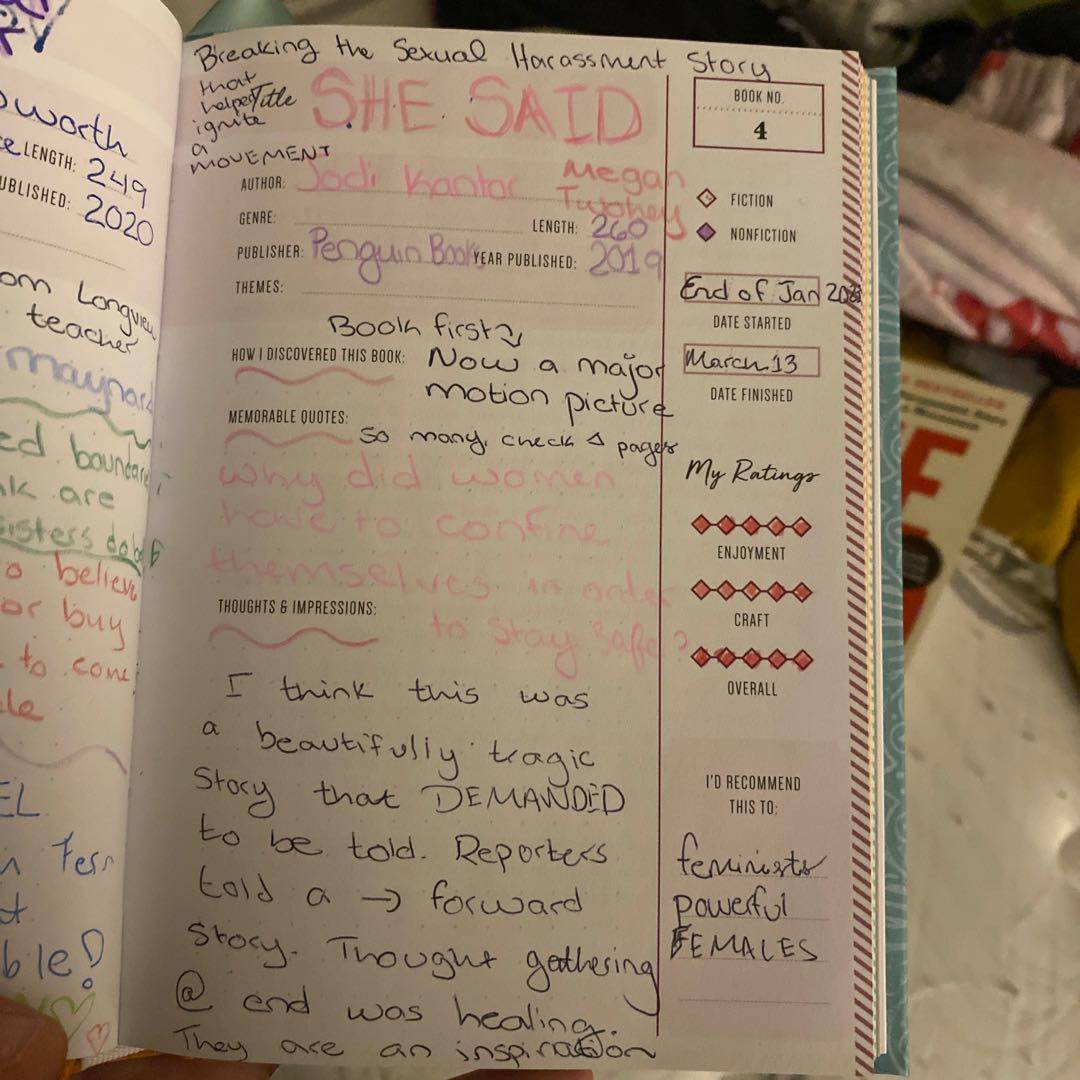 worth
LENGTH: 249
PUBLISHED: 2020
om Longview
teacher
maynard
ed boundari
nk are
sisters
o believe
or buy
to come
le
EL
n Fern
t
ble!
Breaking the Sexual Harassment Story
that
helped Title SHE SAID
ignite
a
MOVEMENT
AUTHOR: Jodi Kantor Megan
Twohey
GENRE: LENGTH: 260
PUBLISHER: Penguin Books YEAR PUBLISHED: 2019
THEMES:
Book first
HOW I DISCOVERED THIS BOOK: Now a major
motion picture
MEMORABLE QUOTES:
so many, check Δ pages
why did women
have to confine
themselves in order
THOUGHTS & IMPRESSIONS: to stay safe?
I think this was
a beautifully tragic
Story that DEMANDED
to be told. Reporters
told a → forward
Story. Thought gathering
@ end was healing.
They are an inspiration
BOOK NO.
4
FICTION
NONFICTION
End of Jan
DATE STARTED
March 13
DATE FINISHED
My Ratings
ENJOYMENT
CRAFT
OVERALL
I'D RECOMMEND
THIS TO:
feminists
powerful
FEMALES
E